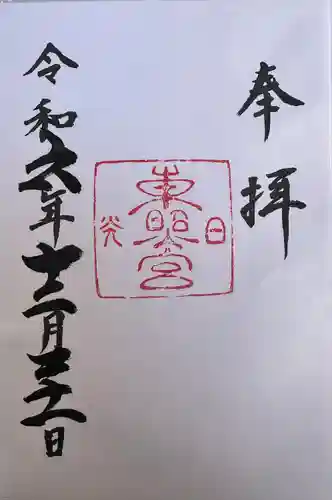 奉拝
日
東照宮
光
令和六年十二月三十一日